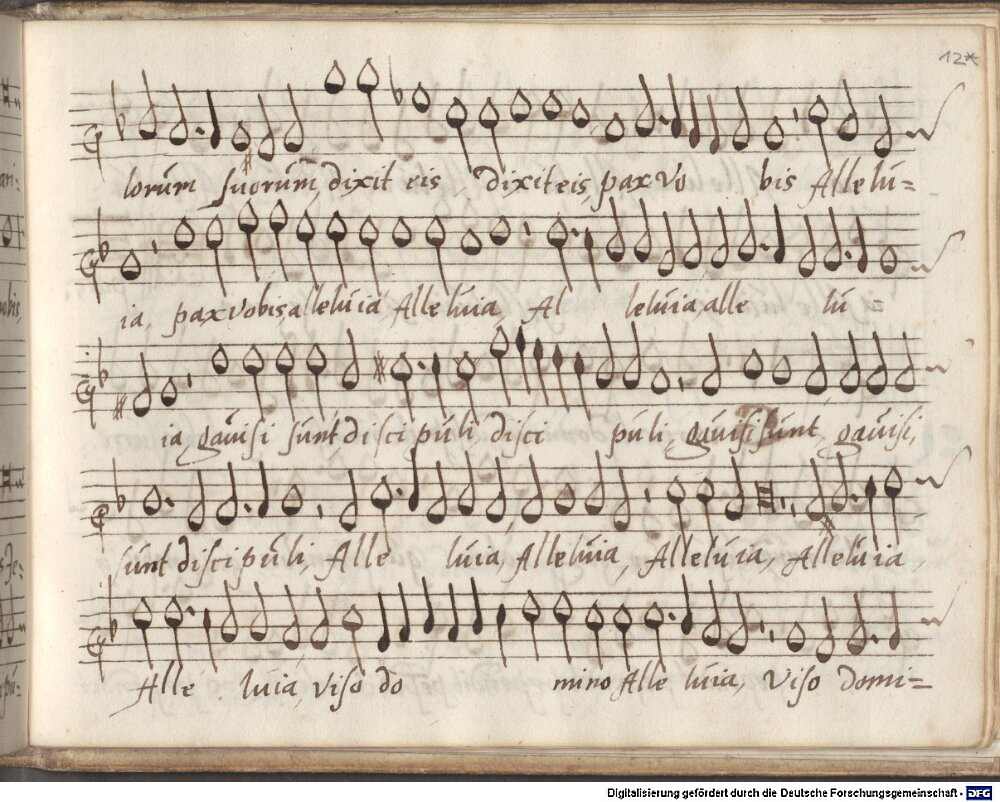 12*
lorum suorum, dixit eis, dixit eis, pax vo bis Allelu=
ia, pax vobis, alleluia, Alleluia, Al leluia, alle lu
ia gavisi sunt discipuli disci puli, gavisi sunt, gavisi,
sunt discipuli, Alle luia, Alleluia, Alleluia, Alleluia,
Alle luia, viso do mino Alle luia, viso domi=
Digitalisierung gefördert durch die Deutsche Forschungsgemeinschaft - DFG